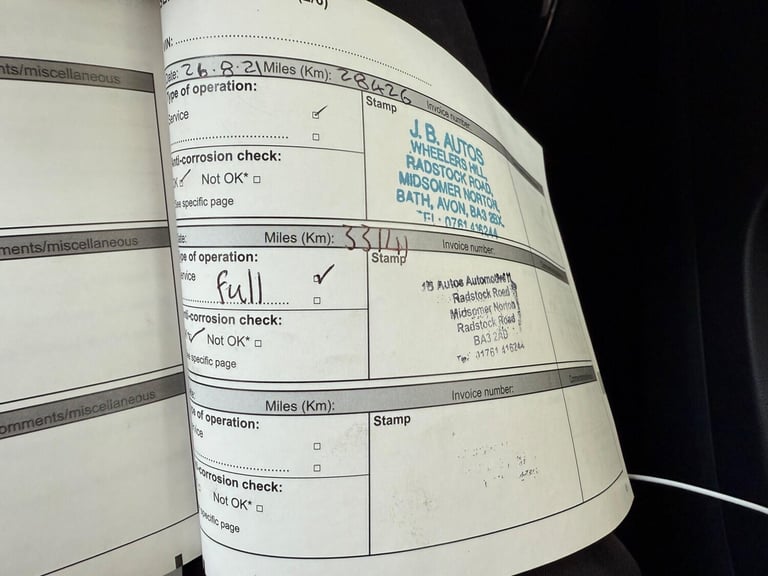 nts/miscellaneous
ments/miscellaneous
omments/miscellaneous
IN:
ate: 26.8.21 Miles (Km): 28426 Invoice number:
Type of operation:
Service
Stamp
J.B. AUTOS
WHEELERS HILL,
RADSTOCK ROAD,
MIDSOMER NORTON,
BATH, AVON, BA3
TEL: 0761 416244
nti-corrosion check:
OK Not OK*
ee specific page
ate: Miles (Km): 33141 Invoice number:
pe of operation:
rvice
full
Stamp
Autos
Radstock Road
Midsomer Norton
Radstock Road
BA3 2AD
Tel: 01761 416244
i-corrosion check:
Not OK*
e specific page
Miles (Km): Invoice number:
e of operation:
ice
Stamp
-corrosion check:
Not OK*
specific page